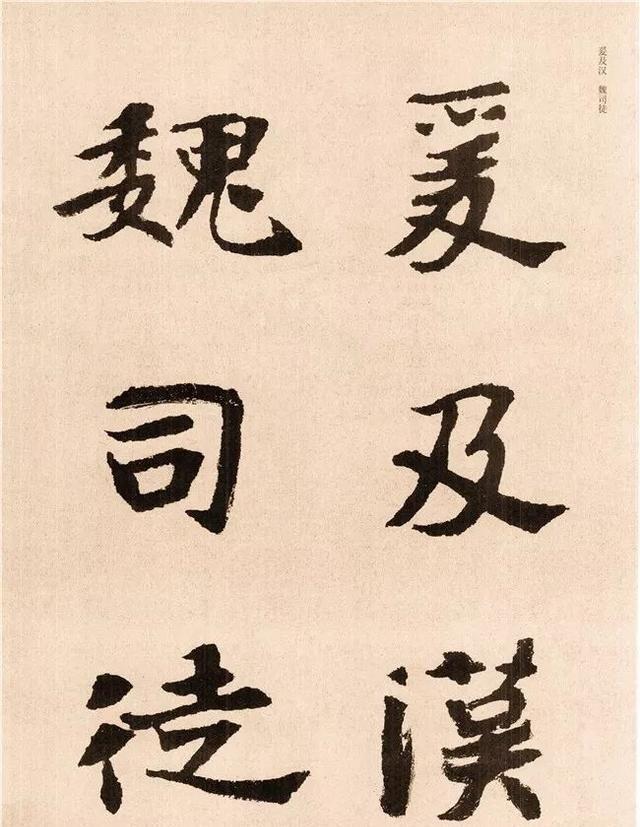 爰及汉　魏司徒
爰及漢
魏司徒